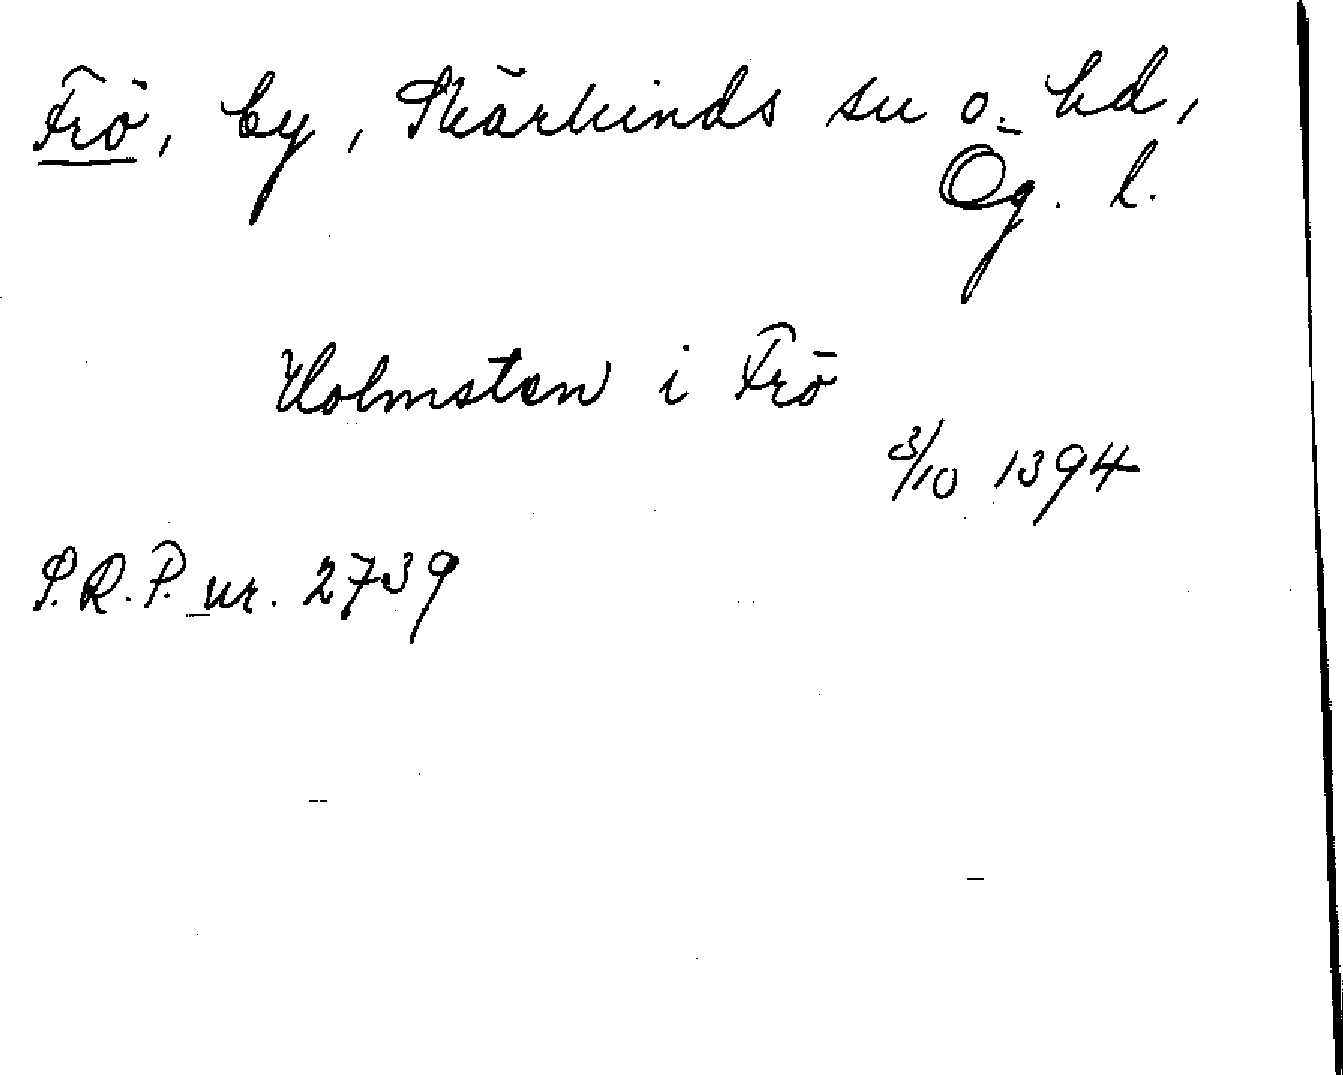 Frö, by, Skärkinds sn o. hd,
Ög. l.
Holmsten i Frö
3/10 1394
P.R.P. nr. 2739